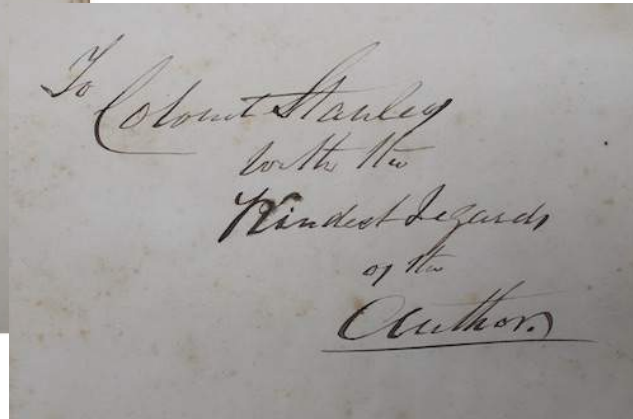 To
Colonel Stanley
with the
Kindest Regards
of the
Author.